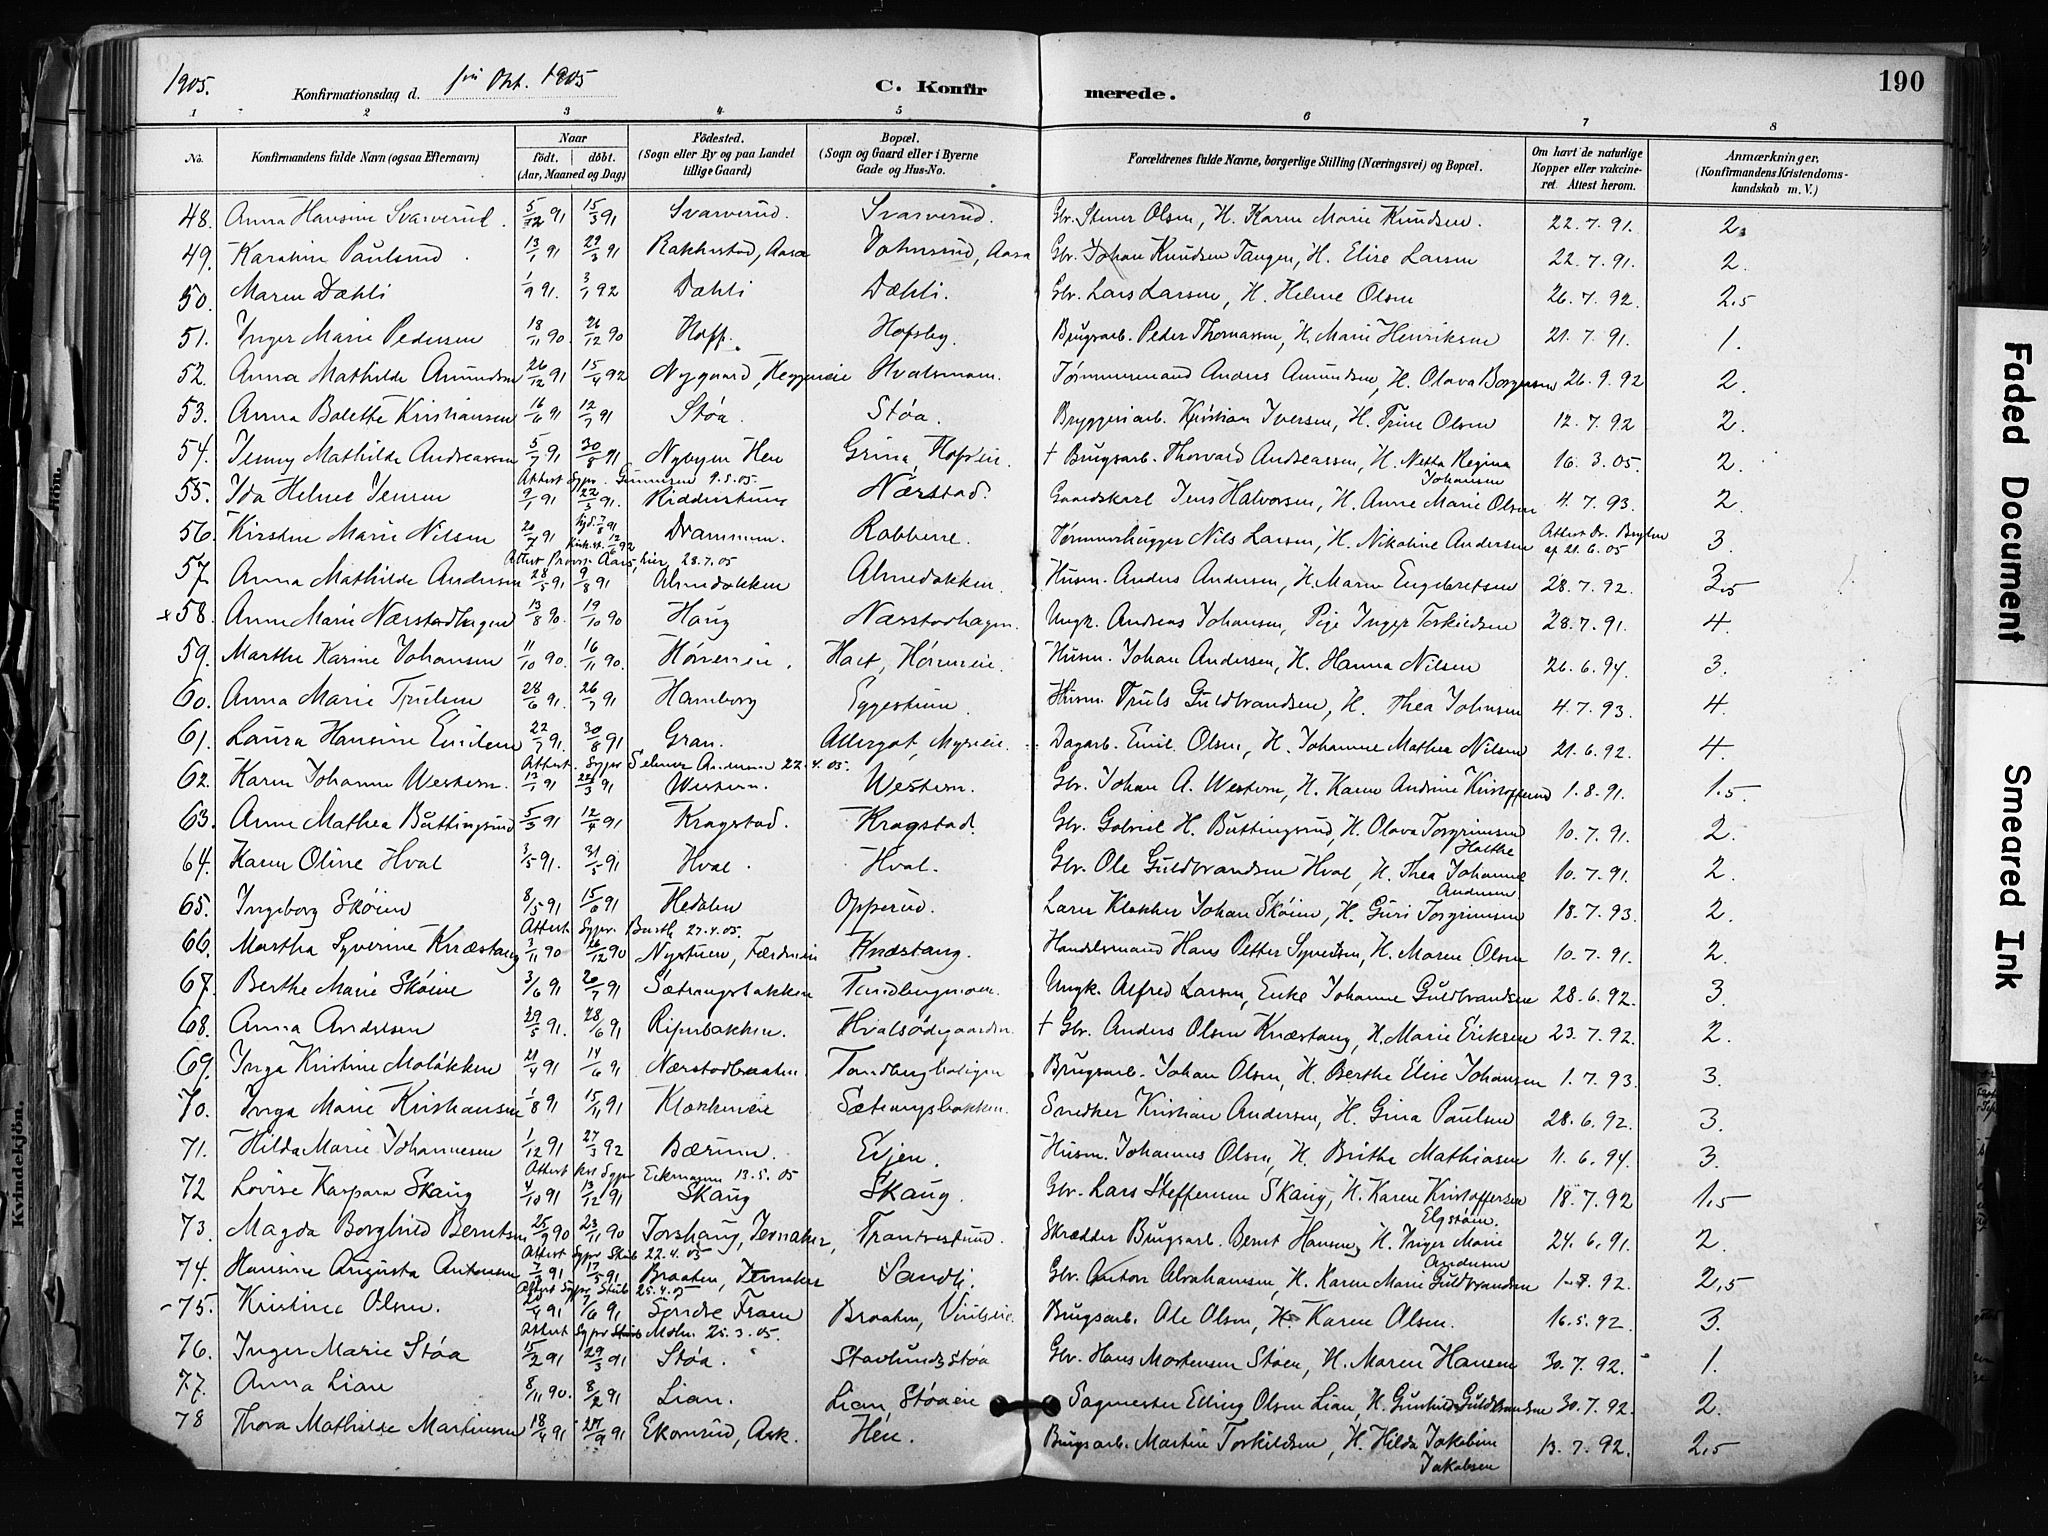 1905. Konfirmationsdag d. 1ste Okt. 1905 C. Konfirmerede. 190
1 2 3 4 5 6 7 8
No. Konfirmandens fulde Navn (ogsaa Efternavn) Naar födt. döbt. (Aar, Maaned og Dag) Födested. (Sogn eller By og paa Landet tillige Gaard) Bopæl. (Sogn og Gaard eller i Byerne Gade og Hus-No. Forældrenes fulde Navne, borgerlige Stilling (Næringsvei) og Bopæl. Om havt de naturlige Kopper eller vakcineret. Attest herom. Anmærkninger, (Konfirmandens Kristendomskundskab m. V.)
48. Anna Hansine Svarverud. 5/12 91 15/3 91 Svarverud. Svarverud. Gbr. Stener Olsen, H. Karen Marie Knudsen. 22.7.91. 2.
49. Karoline Paulsrud. 13/1 91 29/3 91 Rakkestad, Aasa Johnsrud, Aasa Gbr. Johan Knudsen Tangen, H. Elise Larsen 22.7.91. 2.
50. Maren Dæhli 1/9 91. 3/1 92 Dæhli Dæhli. Gbr. Lars Larsen, H. Helene Olsen 26.7.92. 2,5
51. Inger Marie Pedersen 18/11 90. 26/12 90 Hoff. Hofsby. Brugsarb. Peder Thomassen, H. Marie Henriksen 21.7.91. 1.
52. Anna Mathilde Amundsen 26/12 91 15/4 92 Nygaard, Heggeneie Hvalsmoen. Tømmermand Anders Amundsen, H. Olava Borgersen 26.9.92 2.
53. Anna Bolette Kristiansen 16/6 91 12/7 91 Støa. Støa. Bryggeriarb. Kristian Iversen, H. Trine Olsen 12.7.92 2.
54. Jenny Mathilde Andreassen 5/7 91 30/8 91 Nybyen Hen Grina, Hofseie. † Brugsarb. Thorvard Andreassen, H. Netta Regina Johansen 16.3.05. 2.
Attest Sgpr. Gunnesen 9.5.05.
55. Ida Helene Jensen 9/1 91 22/3 91. Ridderstuen Nærstad. Gaardskarl Jens Halvorsen, H. Anne Marie Olsen 4.7.93. 2.
56. Kirstine Marie Nilsen 20/7 91 Hjd. 7/8 91 Kirk.st. 12/6 92 Drammen. Robberre. Tømmerhugger Nils Larsen, H. Nikoline Andersen Attest Dr. af 21.6.05 3.
Attest Provsi Aars, hier, 28.7.05
57. Anna Mathilde Andersen 28/5 91 9/8 91 Almebakken Almebakken. Husm. Anders Andersen, H. Maren Engebretsen 28.7.92. 3,5
x58. Anne Marie Nærstadhagen 13/8 90. 19/10 90 Haug Nærstadhagen. Ungk. Andreas Johansen, Pige Inger Torkildsen 28.7.91. 4.
59. Marthe Karine Johansen 11/10 90. 16/11 90. Hørneneie. Hart, Hørneneie. Husm. Johan Andersen, H. Hanna Nilsen 26.6.94. 3.
60. Anna Marie Trulsen 28/6 91. 26/7 91 Hamborg Eggestuen. Husm. Truls Guldbrandsen, H. Thea Johnsen 4.7.93. 4.
61. Laura Hansine Emilsen 22/7 91. 30/8 91 Gran. Allergot, Myreeie. Dagarb. Emil Olsen, H. Johanne Mathea Nilsen 21.6.92. 4.
Attest. Sgpr Selmer Andersen 22.4.05.
62. Karen Johanne Western. 13/1 91 22/3 91 Western. Western. Gbr. Johan A. Western, H. Karen Andrine Kristoffersen 1.8.91. 1.5.
63. Anne Mathea Buttingsrud 5/3 91 12/4 91 Kragstad. Kragstad. Gbr. Gabriel H. Buttingsrud, H. Olava Torgrimsen Holthe 10.7.91. 2.
64. Karen Oline Hval 3/5 91. 31/5 91 Hval. Hval. Gbr. Ole Guldbrandsen Hval, H. Thea Johanne Andersen 10.7.91. 2.
65. Ingeborg Skøien 8/5 91 15/6 91 Hedalen Opperud. Lærer Klokker Johan Skøien, H. Guri Torgrimsen 18.7.93. 2.
Attest Sgpr. 27.4.05.
66. Martha Syverine Knæstang 3/11 90 26/12 90 Nystuen, Færdeneie Knæstang. Handelsmand Hans Petter Syversen, H. Maren Olsen 10.7.91. 2.
67. Berthe Marie Skøien 3/6 91 20/7 91 Sætrangsbakken Tandbergmoen. Ungk. Alfred Larsen, Enke Johanne Guldbrandsen 28.6.92. 3.
68. Anna Andersen 29/5 91. 28/6 91 Ripenbakken. Hvalsødegaarden. † Gbr. Anders Olsen Knæstang, H. Marie Eriksen 23.7.92. 2.
69. Inga Kristine Moløkken 21/4 91 14/6 91 Nærstadbraaten. Tandbergboligen Brugsarb. Johan Olsen, H. Berthe Elise Johansen 1.7.93. 3.
70. Inga Marie Kristiansen 1/8 91 15/11 91 Klækkeneie Sætrangsbakken. Snedker Kristian Andersen, H. Gina Paulsen 28.6.92. 3.
71. Hilda Marie Johannesen 1/12 91 27/3 92 Bærum. Evjen. Husm. Johannes Olsen, H. Brithe Mathiasen 11.6.94. 3.
Attest Sgpr Eckmann 13.5.05
72 Lovise Kaspara Skaug 4/10 91 13/12 91 Skaug Skaug. Gbr. Lars Steffensen Skaug, H. Karen Kristoffersen Elgstøen. 18.7.92 1,5
73. Magda Borghild Berntsen 25/9 90 23/11 90 Torshaug, Jevnaker, Trantvestuen. Skrædder Brugsarb. Bernt Hansen, H. Inger Marie Andersen 24.6.91. 2.
Attest Sgpr Stub 22.4.05
74. Hansine Augusta Antonsen 7/4 91 17/5 91 Braaten, Jevnaker Sandli. Gbr. Anton Abrahamsen, H. Karen Marie Guldbrandsen 1.7.92. 2,5
Attest Sgpr Stub 25.4.05
-75. Kristine Olsen. 20/4 91 7/6 91 Søndre Fram Braaten, Viulseie. Brugsarb. Ole Olsen, H. Karen Olsen. 16.5.92. 3.
Attest Sgpr Moln. 25.3.05.
76. Inger Marie Støa 15/2 91 29/3 91 Støa. Stavlunds Støa Gbr. Hans Mortensen Støen, H. Maren Hansen 30.7.92. 1.
77. Anna Lian 8/11 90. 8/2 91 Lian. Lian, Støaeie Sagmester Elling Olsen Lian, H. Gunhild Guldbrandsen 30.7.92. 2.
78 Thora Mathilde Martinsen 18/4 91 27/9 91 Ekornrud, Ask. Hen. Brugsarb. Martin Torkildsen, H. Hilda Jakobine Jakobsen 13.7.92. 2,5
Kvindekjön.
Faded Document
Smeared Ink